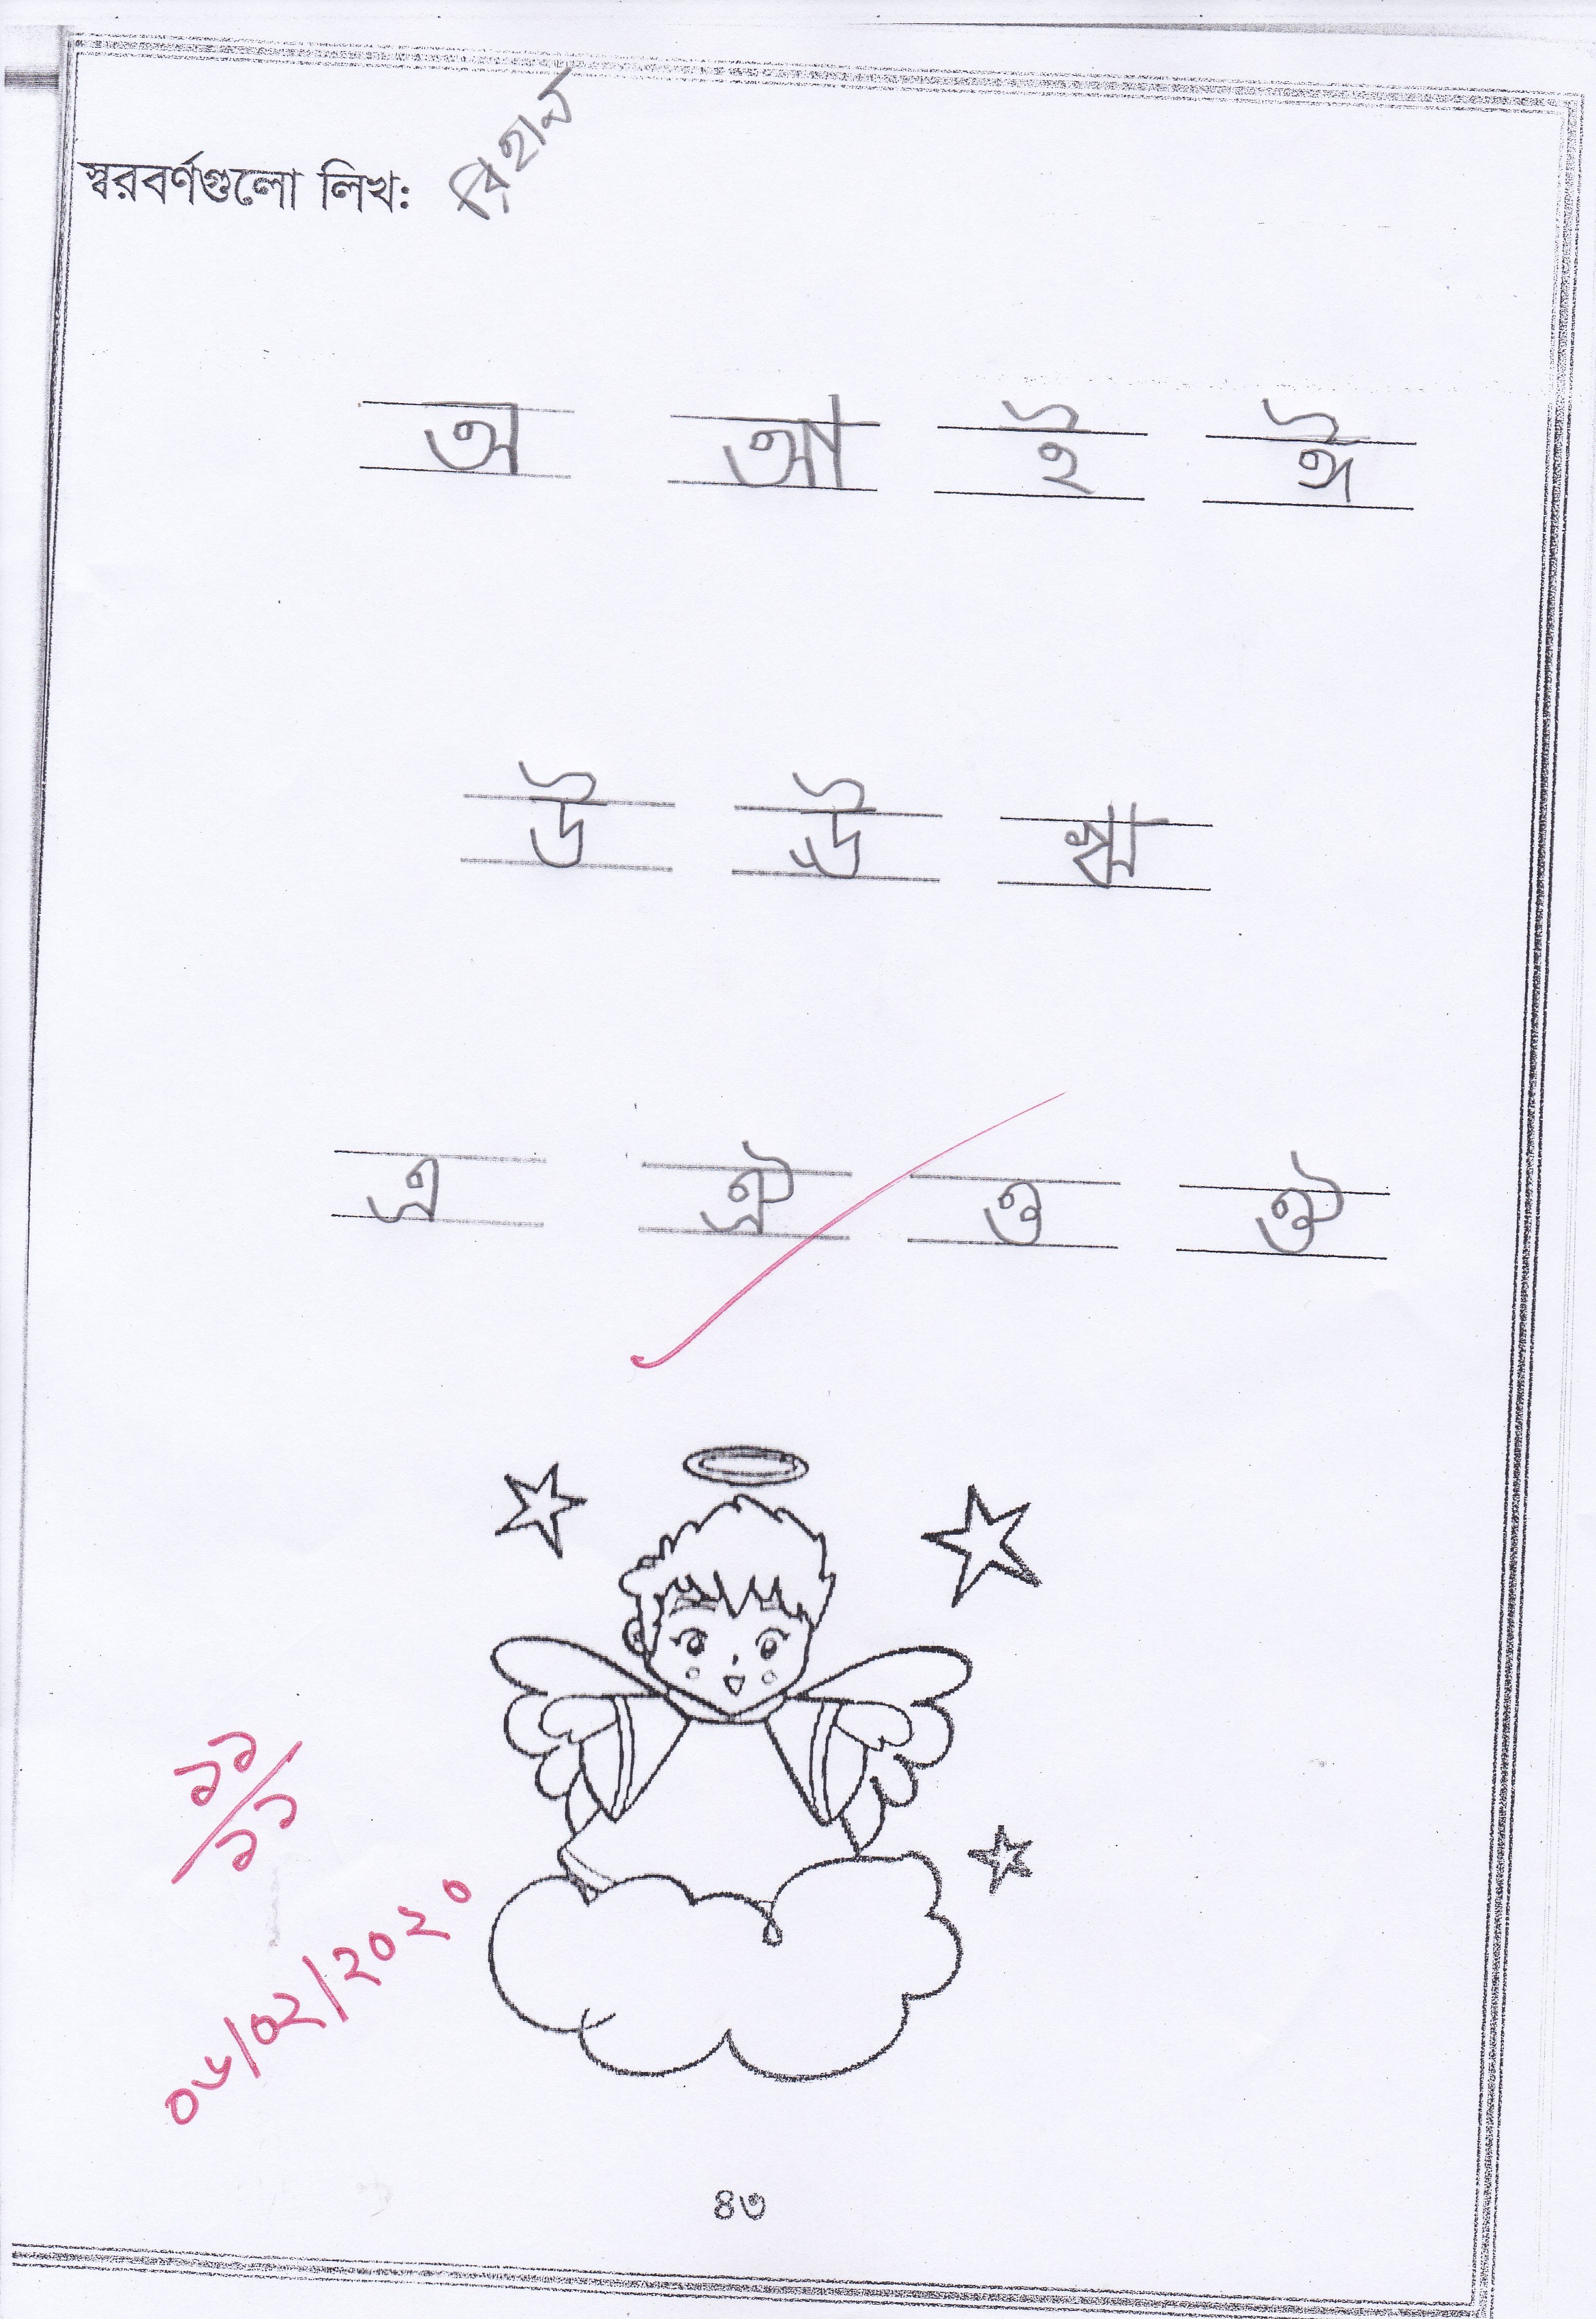 স্বরবর্ণগুলো লিখ: রিহান
অ আ ই ঈ
উ ঊ ঋ
এ ঐ ও ঔ
১১/১১
০৬/০২/২০২০
৪৩